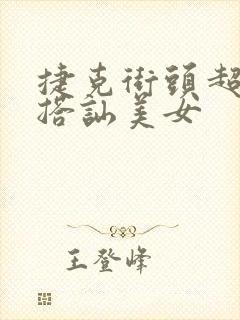 捷克街頭超
搭訕美女
王登峰